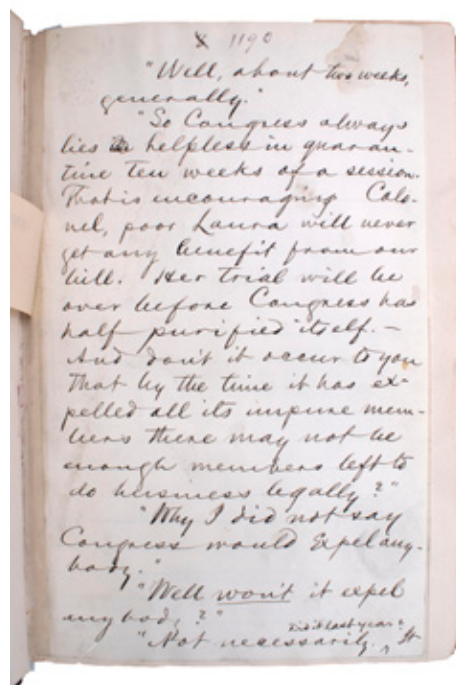 x 1190
"Well, about two weeks,
generally."
"So Congress always
lies helpless in quaran-
tine ten weeks of a session.
That is encouraging Colo-
nel, poor Laura will never
get any benefit from our
bill. Her trial will be
over before Congress has
half purified itself. —
And don't it occur to you
that by the time it has ex-
pelled all its impure mem-
bers there may not be
enough members left to
do business legally?"
"Why I did not say
Congress would expel any-
body."
"Well won't it expel
anybody?"
Did it last year?
"Not necessarily. It